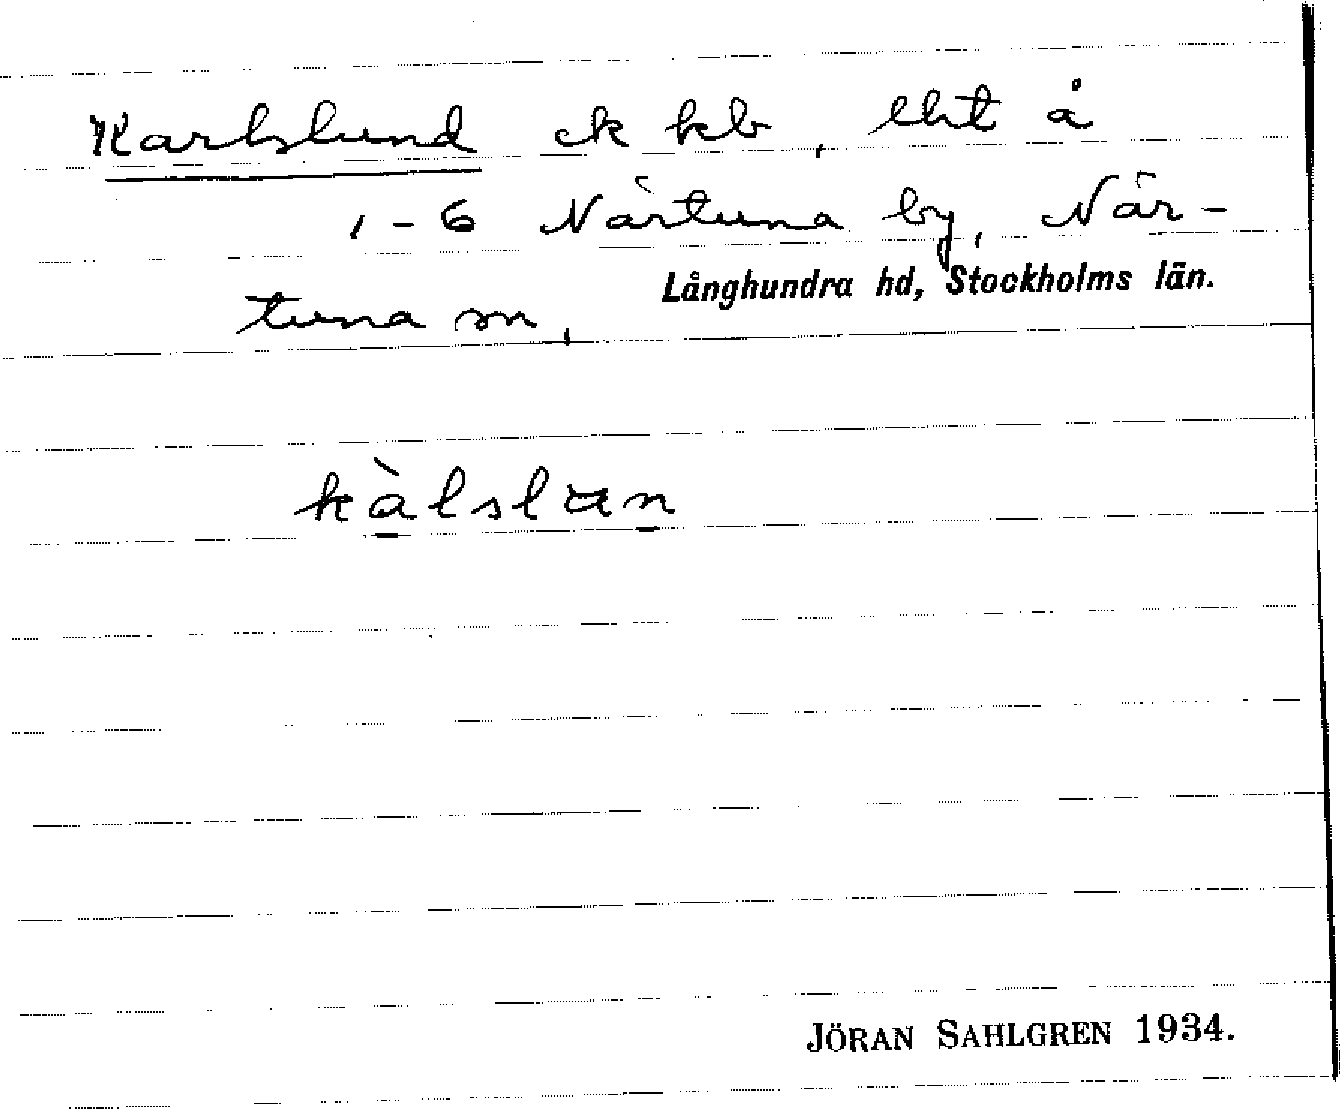 Karlslund ek kb, lht å
1-6 Närtuna by, När-
tuna sn,
Långhundra hd, Stockholms län.
kàlslun
JÖRAN SAHLGREN 1934.